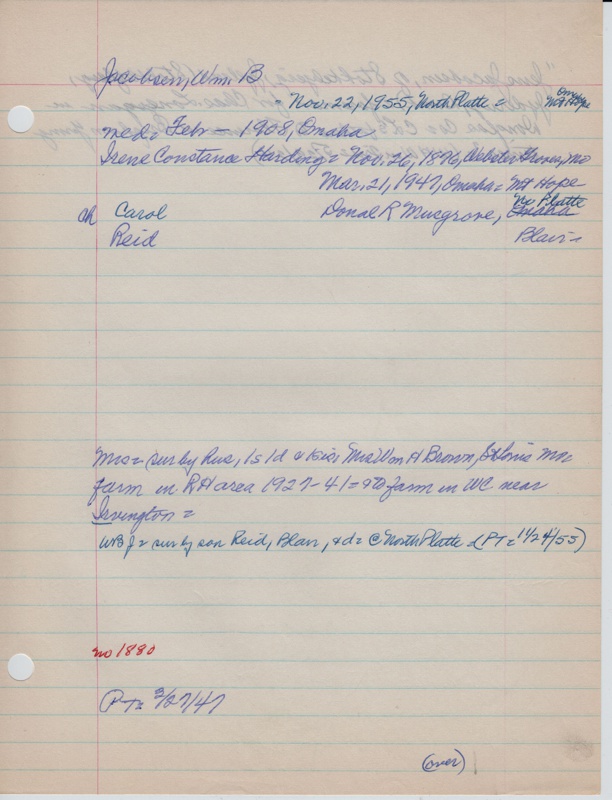 Jacobsen, Wm. B
- Nov. 22, 1955, North Platte = Omaha Mt Hope
med = Feb - 1908, Omaha
Irene Constance Harding = Nov. 26, 1876, Webster Groves, Mo
Mar. 21, 1947, Omaha = Mt Hope
ch Carol Donal R Musgrove, Omaha No Platte
Reid Blair -
Mrs = sur by hus, 1s 1d & sis, Mrs Wm H Brown, St Louis Mo
farm in RH area 1927-41 = to farm in WC near
Irvington =
WBJ = sur by son Reid, Blair, & d = @ North Platte = (PT = 11/24/55)
no 1880
(PT = 3/27/47
(over)